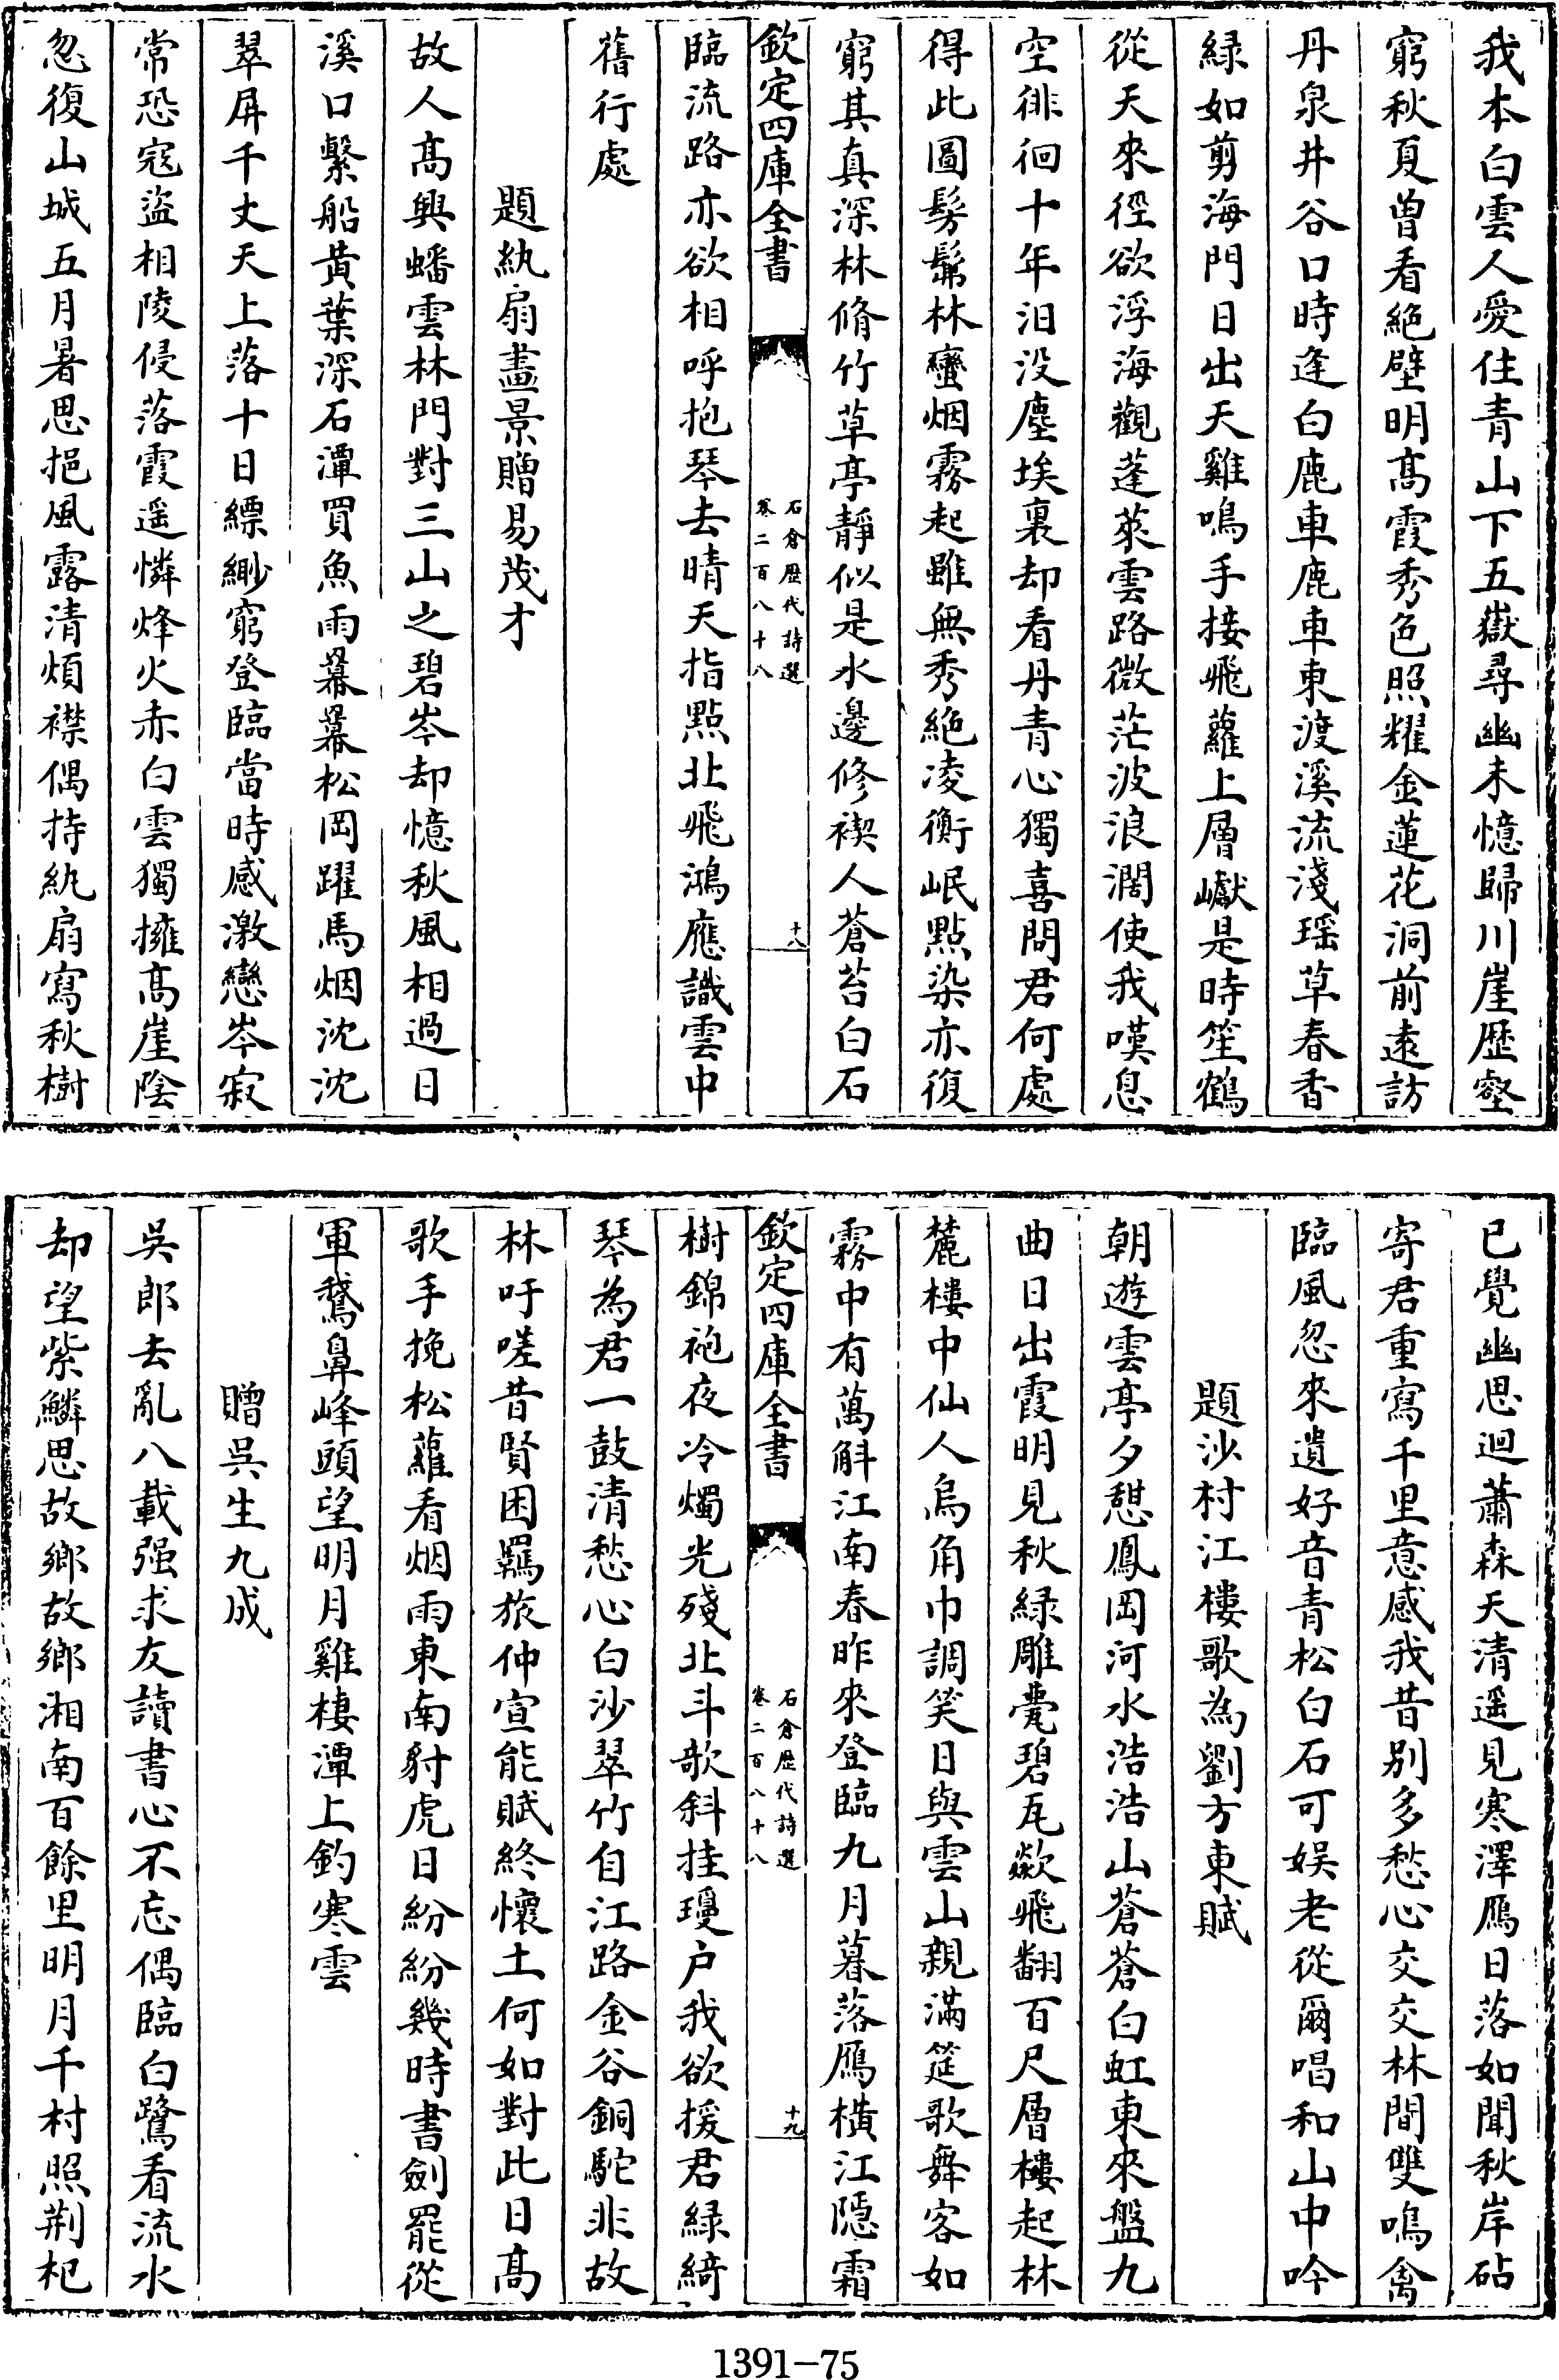 我本白雲人愛住青山下五嶽尋幽未憶歸川崖歴壑
窮秋夏曽看絶壁明髙霞秀色照耀金蓮花洞前逺訪
丹泉井谷口時逢白鹿車鹿車東渡溪流淺瑶草春香
緑如剪海門日出天雞鳴手接飛蘿上層巘是時笙鶴
從天來徑欲浮海觀蓬萊雲路微茫波浪濶使我嘆息
空徘徊十年汩没塵埃裏却看丹青心獨喜問君何處
得此圖髣髴林巒烟霧起雖無秀絶凌衡岷點染亦復
窮其真深林脩竹草亭靜似是水邊修禊人蒼苔白石
欽定四庫全書
石倉歴代詩選
卷二百八十八
十八
臨流路亦欲相呼抱琴去晴天指點北飛鴻應識雲中
舊行處
題紈扇畫景贈易茂才
故人髙興蟠雲林門對三山之碧岑却憶秋風相過日
溪口繫船黄葉深石潭買魚雨羃羃松岡躍馬烟沈沈
翠屏千丈天上落十日縹緲窮登臨當時感激戀岑寂
常恐宼盜相陵侵落霞遥憐烽火赤白雲獨擁髙崖陰
忽復山城五月暑思挹風露清煩襟偶持紈扇寫秋樹
已覺幽思迴蕭森天清遥見寒澤鴈日落如聞秋岸砧
寄君重寫千里意感我昔别多愁心交交林間雙鳴禽
臨風忽來遺好音青松白石可娱老從爾唱和山中吟
題沙村江樓歌為劉方東賦
朝遊雲亭夕憇鳳岡河水浩浩山蒼蒼白虹東來盤九
曲日出霞明見秋緑雕甍碧瓦歘飛翻百尺層樓起林
麓樓中仙人烏角巾調笑日與雲山親滿筵歌舞客如
霧中有萬斛江南春昨來登臨九月暮落鴈横江隠霜
欽定四庫全書
石倉歴代詩選
卷二百八十八
十九
樹錦袍夜冷燭光殘北斗欹斜挂瓊户我欲援君緑綺
琴為君一鼓清愁心白沙翠竹自江路金谷銅駝非故
林吁嗟昔賢困羈旅仲宣能賦終懷土何如對此日髙
歌手挽松蘿看烟雨東南豺虎日紛紛幾時書劍罷從
軍鵞鼻峰頭望明月雞棲潭上釣寒雲
贈吳生九成
吳郎去亂八載强求友讀書心不忘偶臨白鷺看流水
却望紫鱗思故鄉故鄉湘南百餘里明月千村照荆杞
1391-75